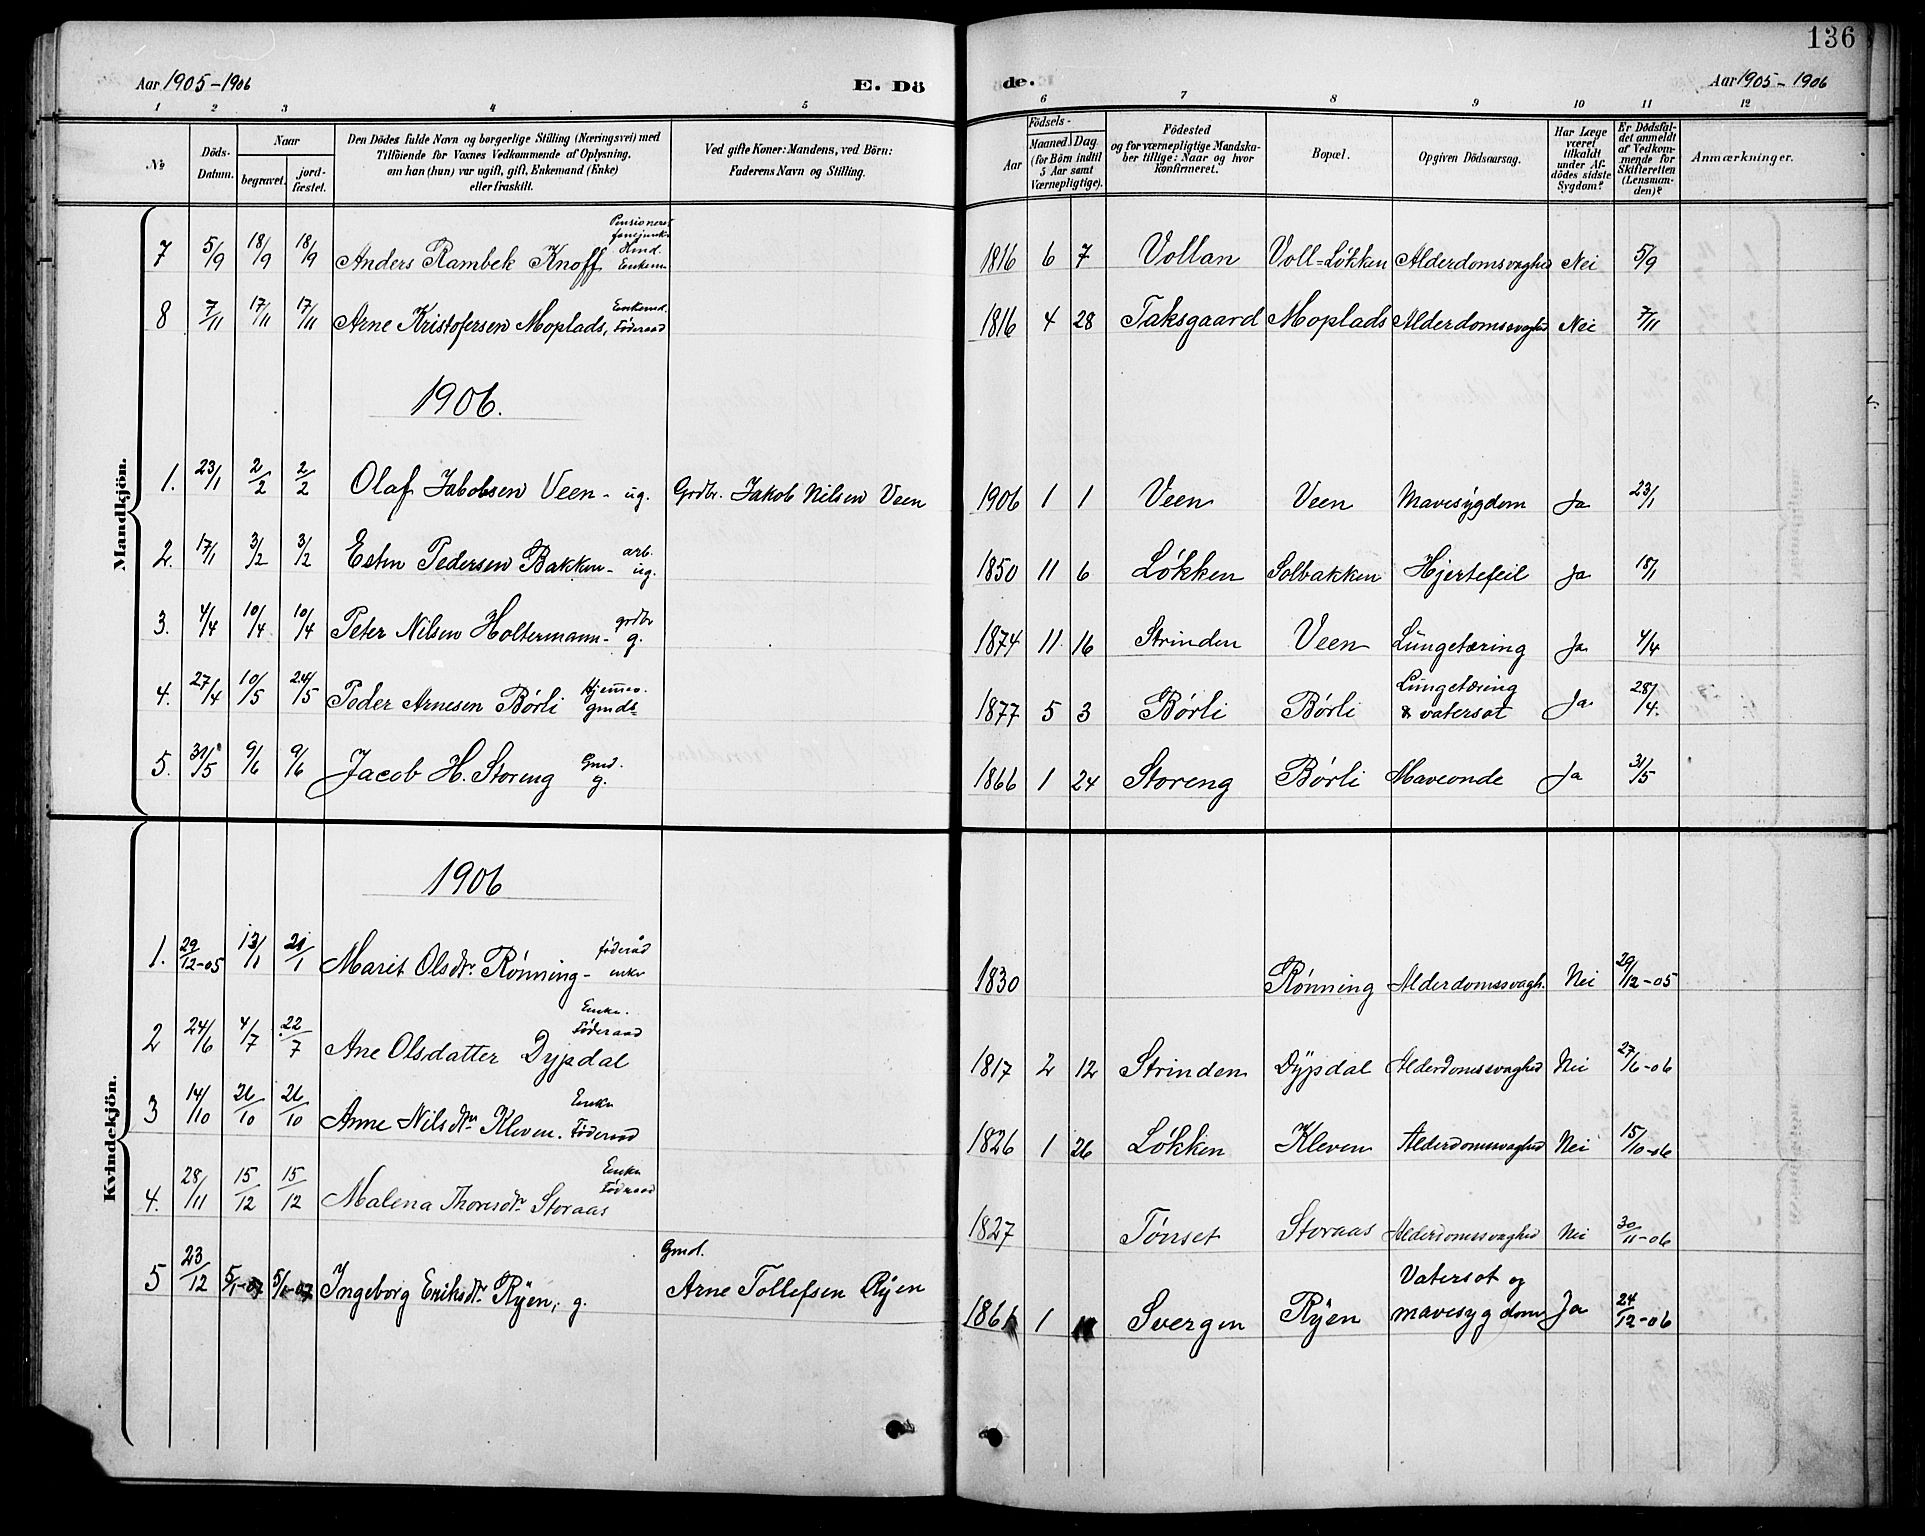 136
Aar 1905-1906 E. Dö de. Aar 1905-1906
1 2 3 4 5 6 7 8 9 10 11 12
No. Döds-Datum. Naar begravet. jord-fæstet. Den Dödes fulde Navn og borgerlige Stilling (Næringsvei) med Tilföiende for Voxnes Vedkommende af Oplysning, om han (hun) var ugift, gift, Enkemand (Enke) eller fraskilt. Ved gifte Koner: Mandens, ved Börn: Faderens Navn og Stilling. Födsels- Aar Maaned. Dag (for Börn indtil 5 Aar samt Værnepligtige). Födested og for værnepligtige Mandska-ber tillige: Naar og hvor konfirmeret. Bopæl. Opgiven Dödsaarsag. Har Læge været tilkaldt under Af-dödes sidste Sygdom? Er Dödsfal-det anmeldt af Vedkom-mende for Skifteretten (Lensman-den)? Anmærkninger.
Mandkjön.
7 5/9 18/9 18/9 Anders Rambek Knoff Enkem 1816 6 7 Vollan Voll-Løkken Alderdomsvaghed Nei 5/9
8 7/11 17/11 17/11 Arne Kristofersen Moplads, Enkemd. Föderaad 1816 4 28 Taksgaard Moplads Alderdomsvaghed Nei 7/11
1906.
1. 23/1 2/2 2/2 Olaf Jakobsen Veen - ug. Grdbr. Jakob Nilsen Veen 1906 1 1 Veen Veen Mavesygdom Ja 23/1
2. 17/1 3/2 3/2 Esten Pedersen Bakken - arb. ug. 1850 11 6 Løkken Solbakken Hjertefeil Ja 18/1
3. 4/4 10/4 10/4 Peter Nilsen Holtermann - grdbr g. 1874 11 16 Strinden Veen Lungetæring Ja 4/4
4. 27/4 10/5 24/5 Peder Arnesen Børli gmds- 1877 5 3 Børli Børli Lungetæring & vatersot Ja 28/4.
5. 31/5 9/6 9/6 Jacob H. Storeng Gmd. g. 1866 1 24 Storeng Børli Maveonde Ja 31/5
Kvindekjön.
1906
1. 29/12-05 13/1 21/1 Marit Olsdtr. Rønning - föderåd enke 1830 Rønning Alderdomssvagh. Nei 29/12-05
2 24/6 4/7 22/7 Ane Olsdatter Dypdal Enke. Föderaad 1817 2 12 Strinden Dypdal Alderdomssvaghed Nei 27/6-06
3 14/10 26/10 26/10 Anne Nilsdtr Kleven. Enke Föderaad 1826 1 26 Løkken Kleven Alderdomssvaghed Nei 15/10-06
4. 28/11 15/12 15/12 Malena Thoresdtr Storaas Enke Föderaad 1827 Tønset Storaas Alderdomssvaghed Nei 30/11-06
5 23/12 5/1-07 5/1-07 Ingeborg Eriksdtr. Ryen, g. Gmd. Arne Tollefsen Ryen 1 Svergen Ryen Vatersot og mavesygdom Ja 24/12-06